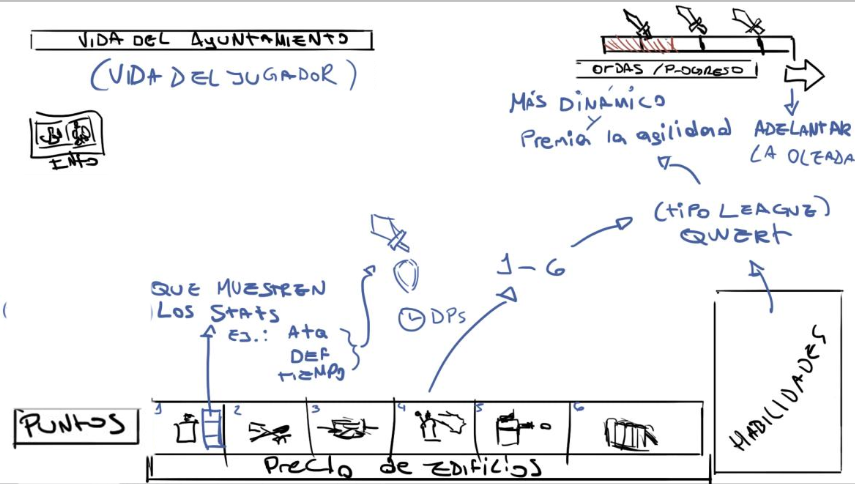 VIDA DEL AYUNTAMIENTO
(VIDA DEL JUGADOR)
INFO
ORDAS / PROGRESO
MÁS DINÁMICO
Y
Premia la agilidad
ADELANTAR
LA OLEADA
(TIPO LEAGUE)
QWERT
1-6
QUE MUESTREN
LOS STATS
EJ.: ATQ
DEF
TIEMPO
DPs
HABILIDADES
PUNTOS
1 2 3 4 5 6
Precio de EDIFICIOS